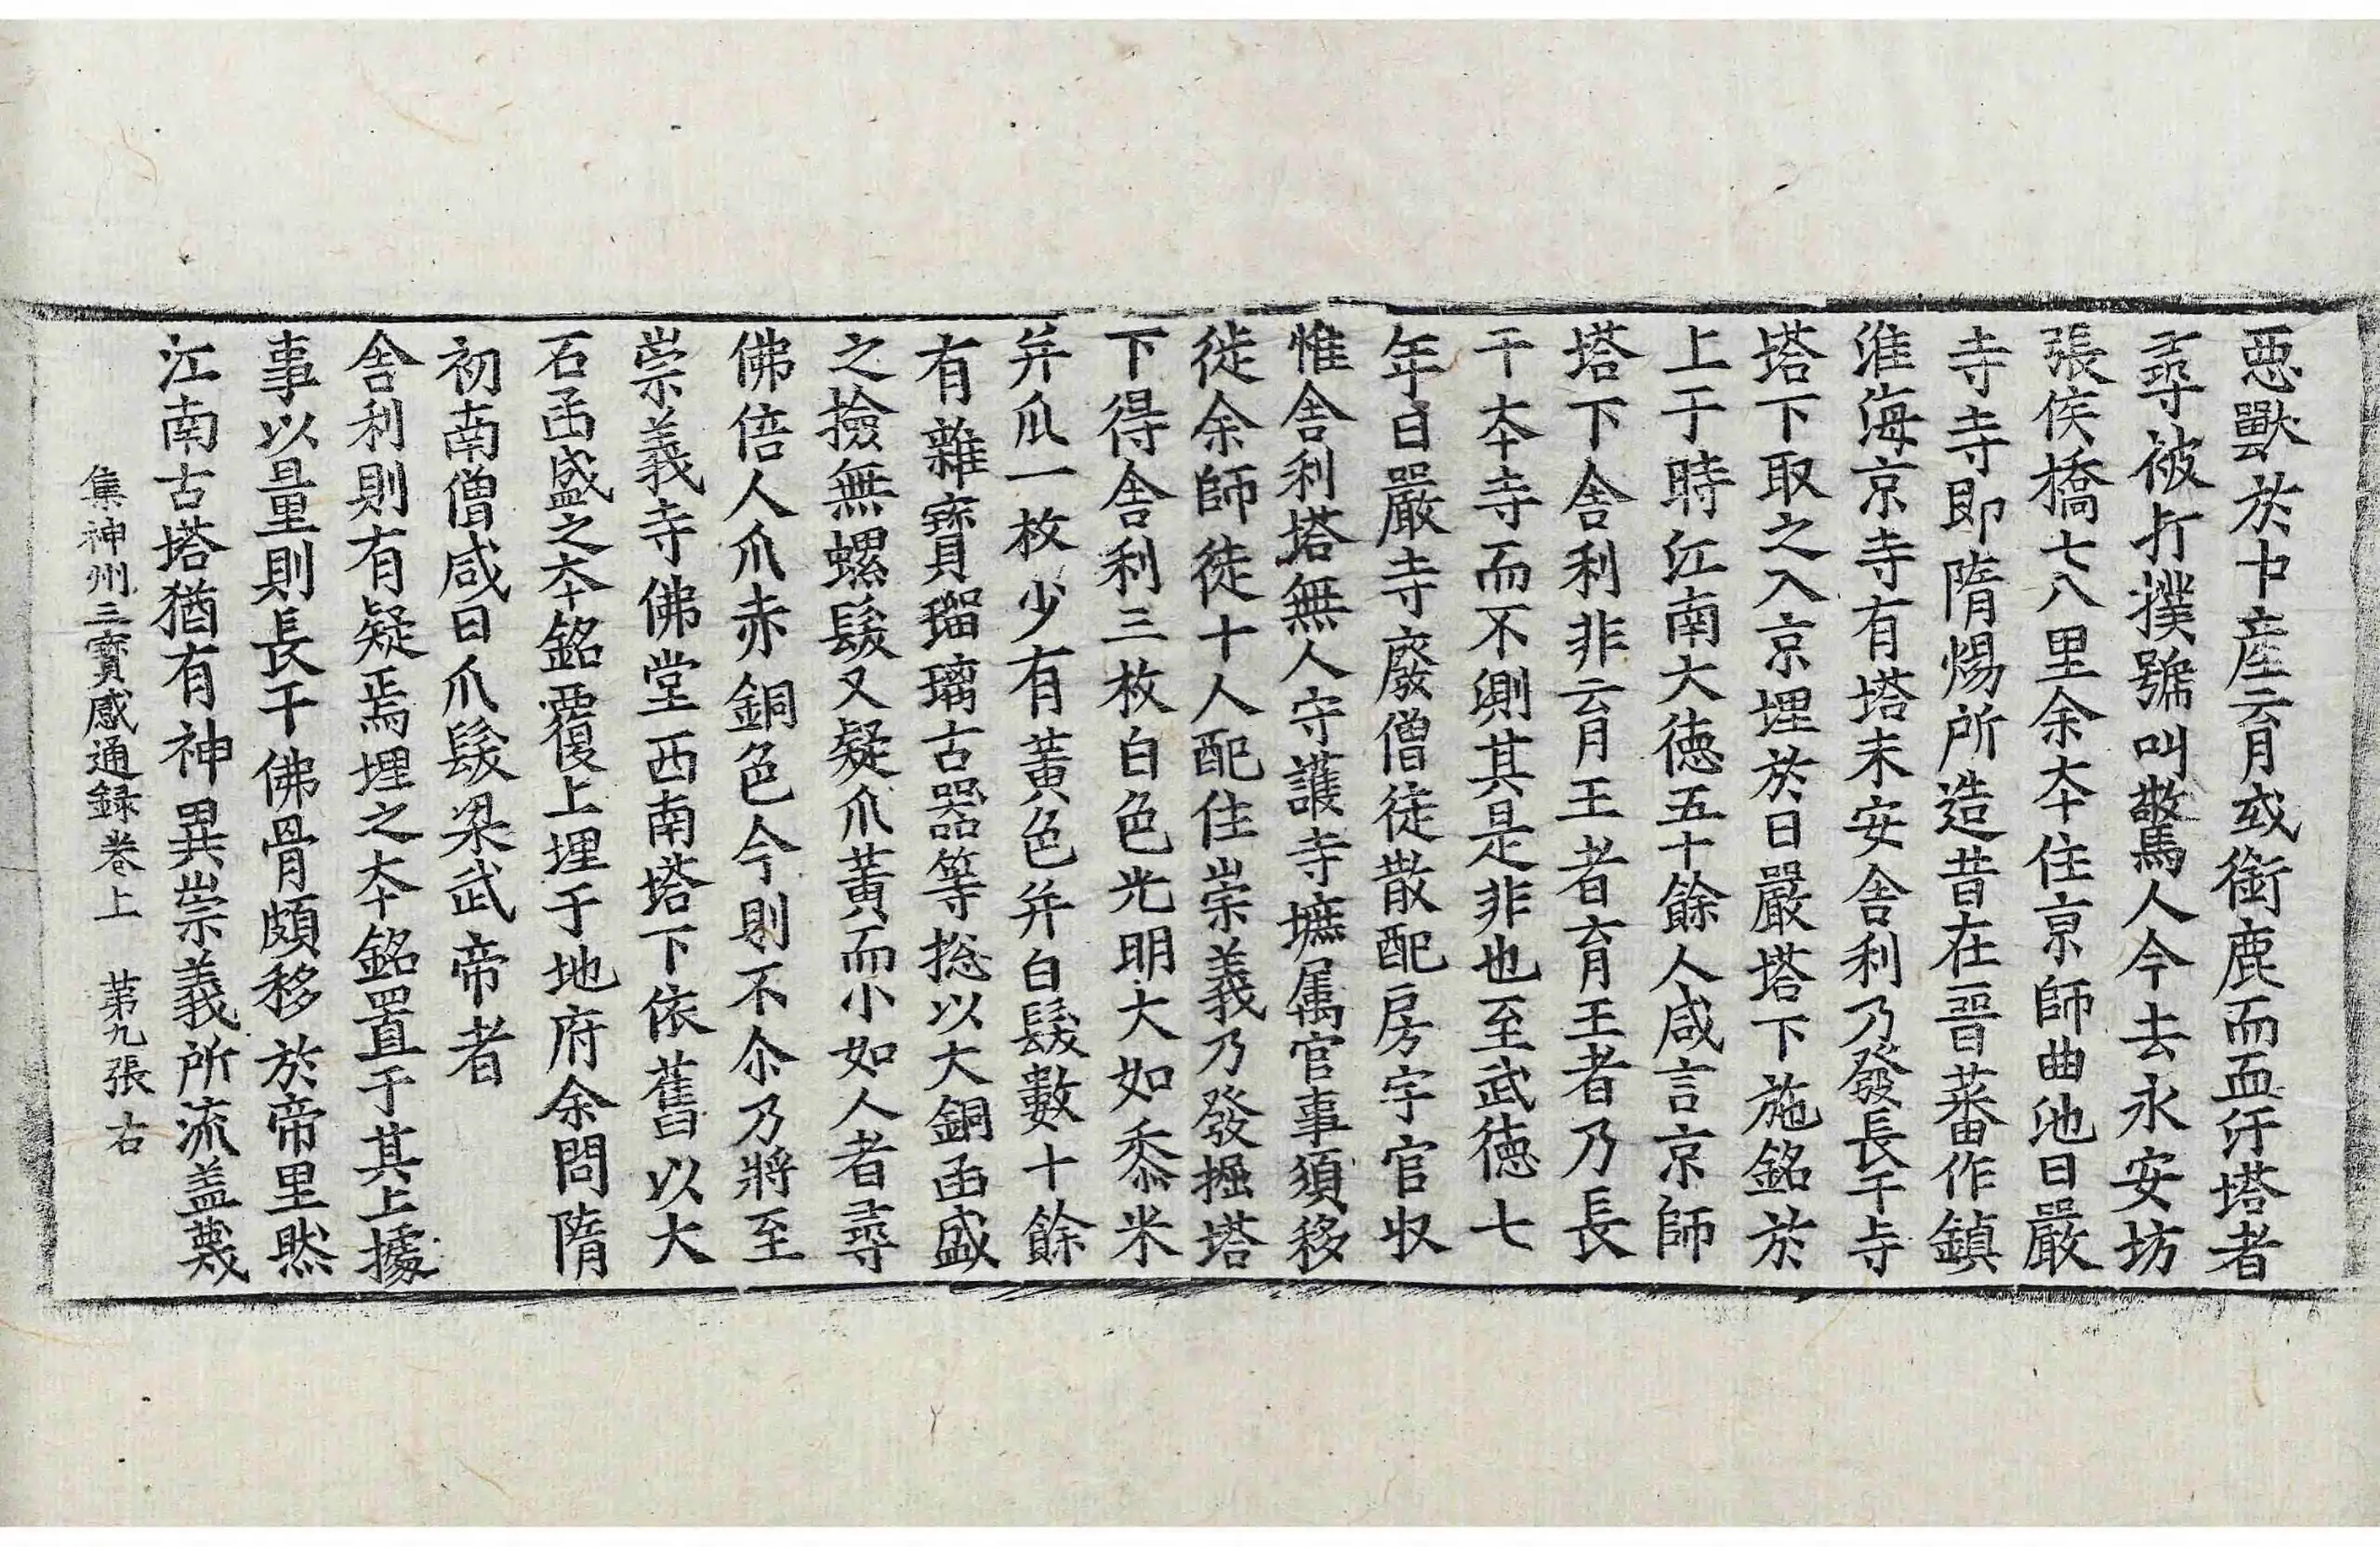 惡獸於中産育或銜鹿而血汙塔者
尋被打撲號叫驚人今去永安坊
張侯橋七八里余本住京師曲池日嚴
寺寺即隋煬所造昔在晋蕃作鎮
淮海京寺有塔未安舎利乃發長干寺
塔下取之入京埋於日嚴塔下施銘於
上于時江南大德五十餘人咸言京師
塔下舎利非育王者育王者乃長
干本寺而不測其是非也至武德七
年日嚴寺廢僧徒散配房宇官収
惟舎利塔無人守護寺墌属官事須移
徙余師徒十人配住崇義乃發掘塔
下得舎利三枚白色光明大如黍米
并爪一枚少有黃色并白髮數十餘
有雜寶瑠璃古器等捴以大銅函盛
之撿無螺髮又疑爪黃而小如人者尋
佛倍人爪赤銅色今則不尒乃將至
崇義寺佛堂西南塔下依舊以大
石函盛之本銘覆上埋于地府余問隋
初南僧咸曰爪髮梁武帝者
舎利則有疑焉埋之本銘置于其上據
事以量則長干佛骨頗移於帝里然
江南古塔猶有神異崇義所流盖蔑
集神州三寶感通録卷上　苐九張　右